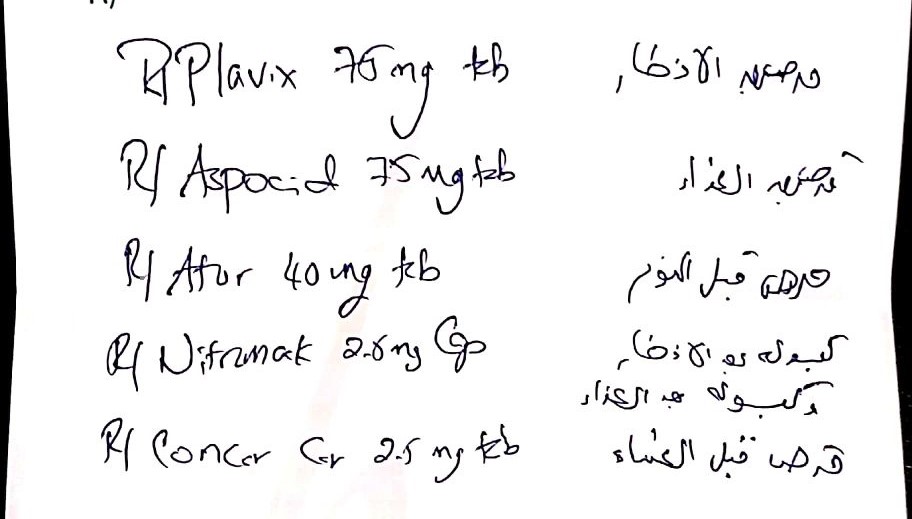 R/ Plavix 75 mg tb قرص بعد الافطار
R/ Aspocid 75 mg tb قرص بعد الغداء
R/ Ator 40 mg tb قرص قبل النوم
R/ Nitromak 2.5 mg Cap كبسولة بعد الافطار
وكبسولة بعد الغداء
R/ Concor Cor 2.5 mg tb قرص قبل العشاء